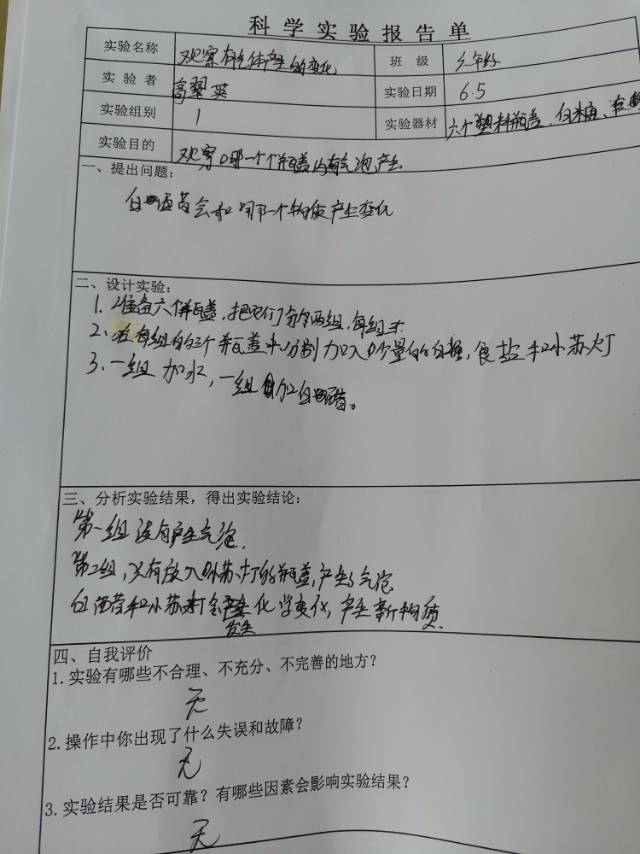 科学实验报告单
实验名称 观察有气体产生的变化 班级
实验者 高翠英 实验日期 6.5
实验组别 1 实验器材 六个塑料瓶盖、白糖、
实验目的 观察哪一个瓶盖内有气泡产生
一、提出问题:
白醋会和哪一个物质产生变化
二、设计实验:
1.准备六个瓶盖,把它们分为两组,每组
2.在每组的三个瓶盖中分别加入个量的白糖,食盐和小苏灯
3.一组加水,一组加白醋。
三、分析实验结果,得出实验结论:
第一组没有产生气泡.
第2组,只有放入小苏灯的瓶盖,产生气泡
白醋和小苏打会发生化学变化,产生新物质.
四、自我评价
1.实验有哪些不合理、不充分、不完善的地方?
无
2.操作中你出现了什么失误和故障?
无
3.实验结果是否可靠?有哪些因素会影响实验结果?
无